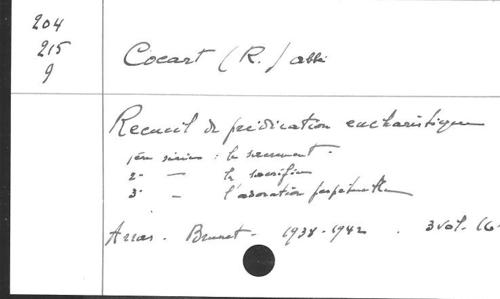 204
215
9
Cocart (R.) abbé
Recueil de prédication eucharistique
1ère série : le sacrement.
2e — le sacrifice
3e — l'adoration perpétuelle
Arras. Brunet. 1938-1942. 3 vol. 16